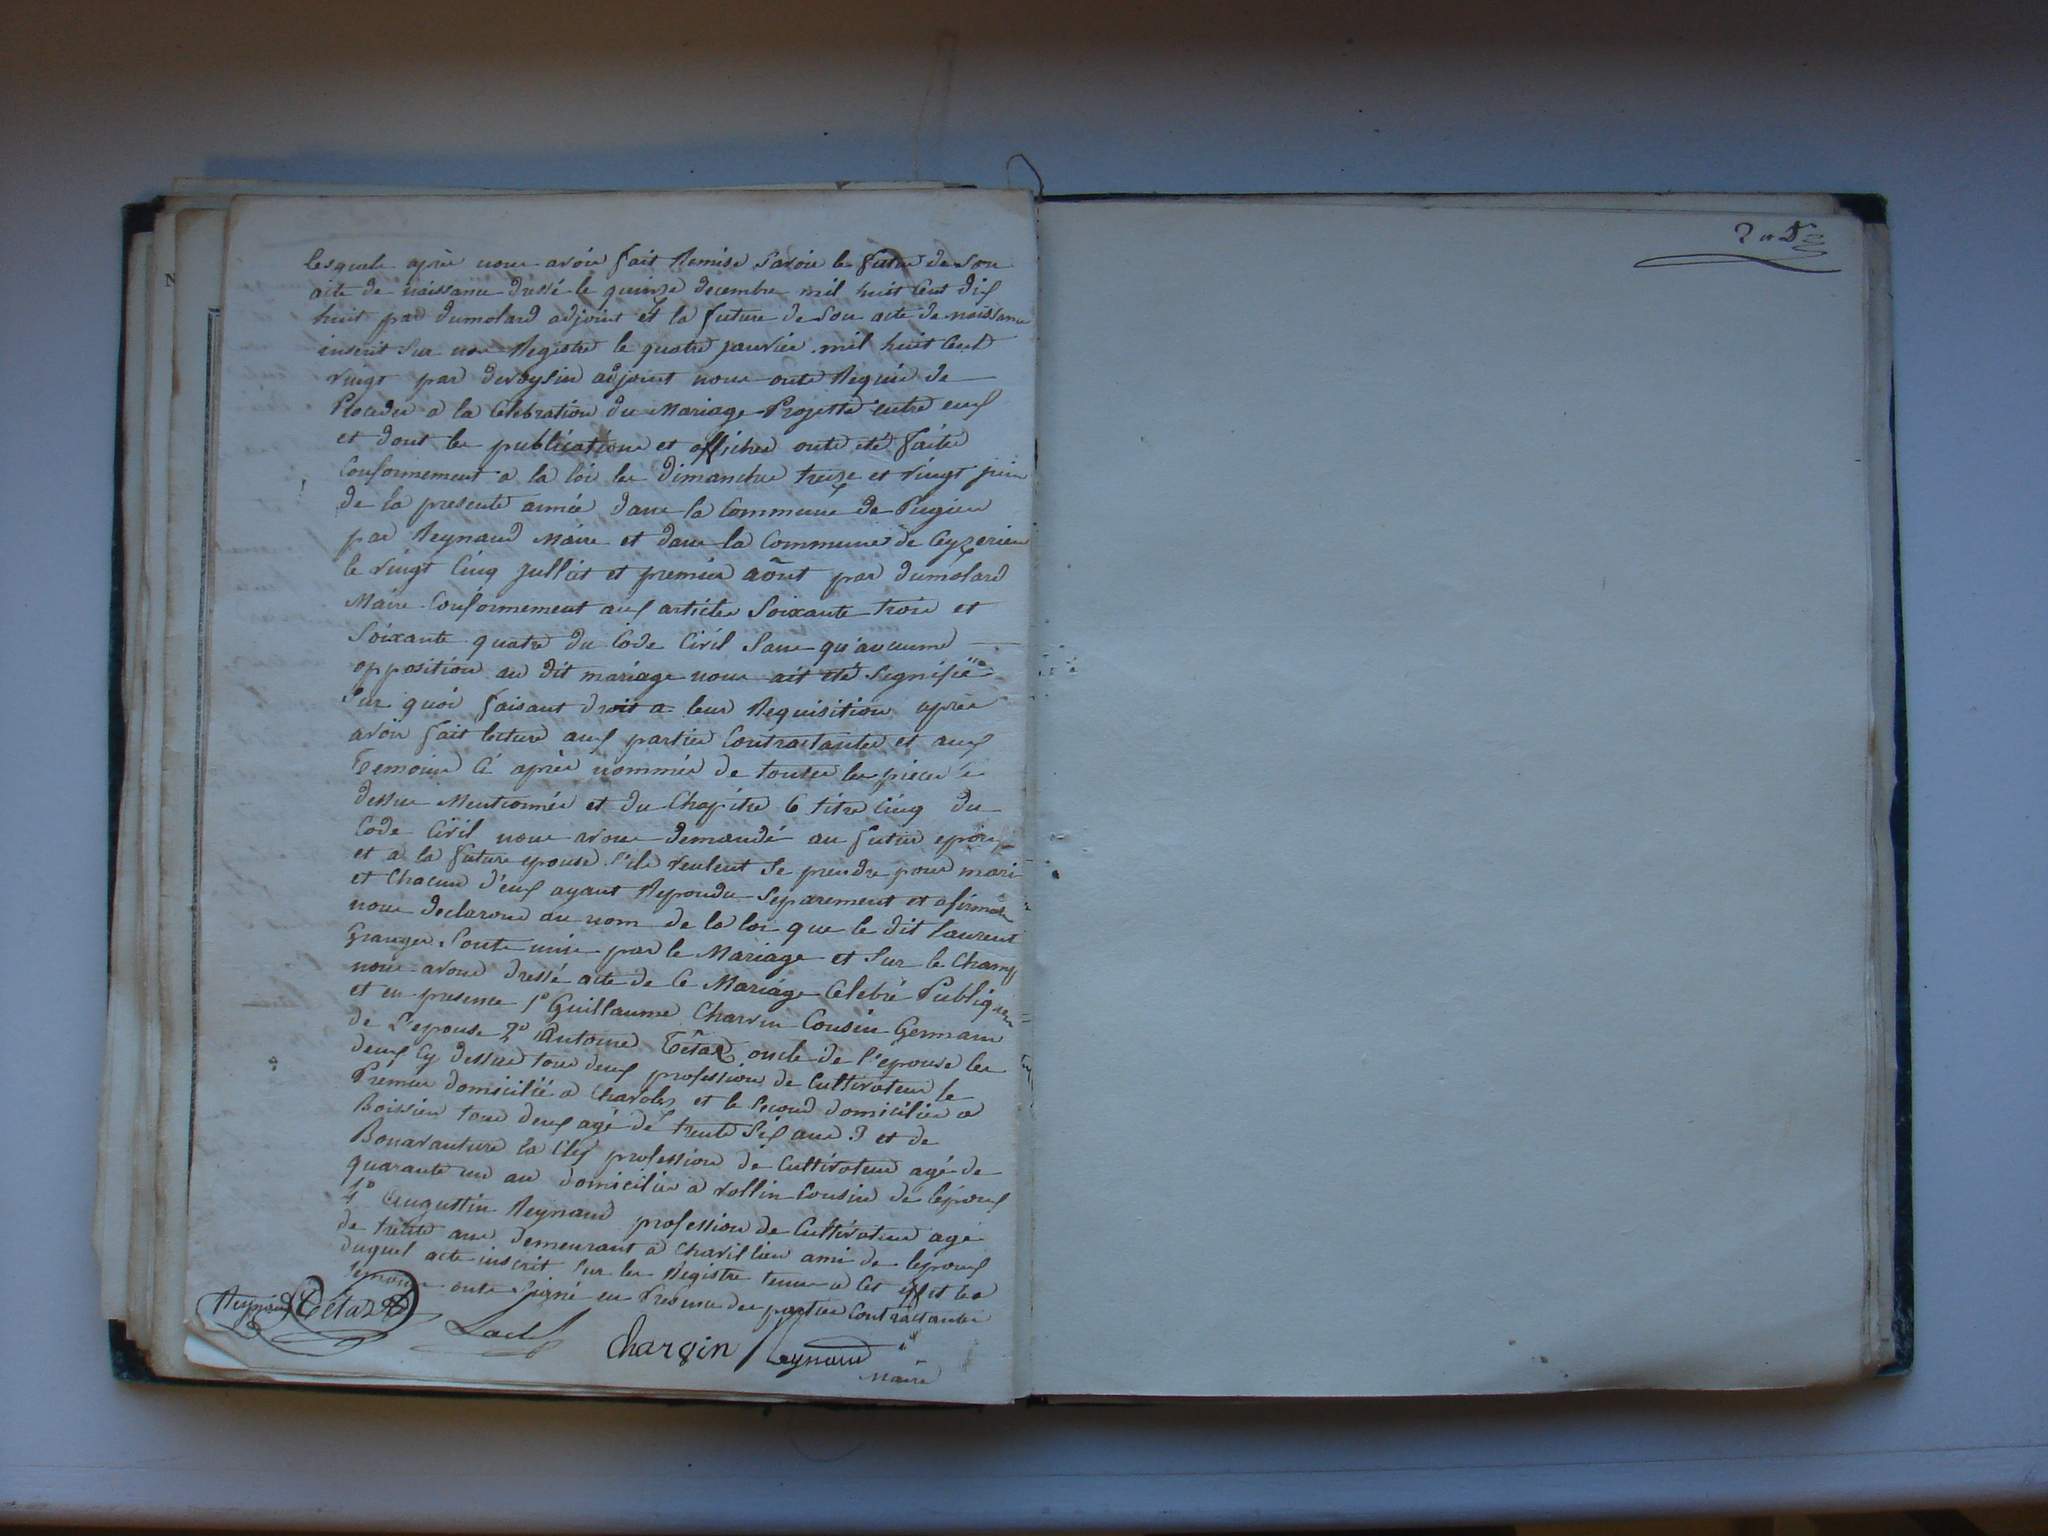 lesquels après nous avoir fait Remise Savoir le futur de Son
acte de naissance dressé le quinze decembre mil huit Cent dix
huit par dumolard adjoint Et la future de Son acte de naissance
inscrit Sur nos Registre le quatre janvier mil huit Cent
vingt par adjoint nous onts Requis de
Proceder a la Celebration du Mariage Projetté entre eux
et dont les publications et affiches onts été faites
Conformement a la loi les Dimanches treize et vingt juin
de la presente année dans la Commune de Pugieu
par Reynaud Maire et dans la Commune de Ceyzerieu
le vingt Cinq Jullet et premier août par dumolard
Maire Conformement aux articles Soixante trois et
Soixante quatre du Code Civil Sans qu'aucune
opposition au dit mariage nous ait été Signifiée
Sur quoi faisant droit a leur Requisition après
avoir fait lecture aux parties Contractantes et aux
Temoins Ci après nommés de toutes les pieces Ci
dessus Mentionnées et du Chapitre 6 titre Cinq du
Code Civil nous avons demandé au futur epoux
et a la future epouse S'ils veulent Se prendre pour mari
et Chacun d'eux ayant Repondu Séparement et
nous declarons au nom de la loi que le dit Laurent
Granger Sonts unis par le Mariage et Sur le Champ
nous avons dressé acte de Ce Mariage Célebré
et en presence 1° Guillaume Charvin Cousin Germain
de L'epouse 2° Antoine Tétaz oncle de l'epouse les
deux Cy dessus tous deux profession de Cultivateur le
Premier domicilié a et le Second domicilié a
Boissieu tous deux agé de trente Six ans 3 et de
Bonavanture la Clef profession de Cultivateur agé de
quarante un an domicilié a Rollin Cousin de lépoux
4° Augustin Reynaud profession de Cultivateur agé
de trente ans demeurant a ami de lepoux
duquel acte inscrit Sur les Registre tenus a Cet effet les
temoins onts Signé en Presence des parties Contractantes
Reynaud Tétaz Laclef
Charvin Reynaud
Maire